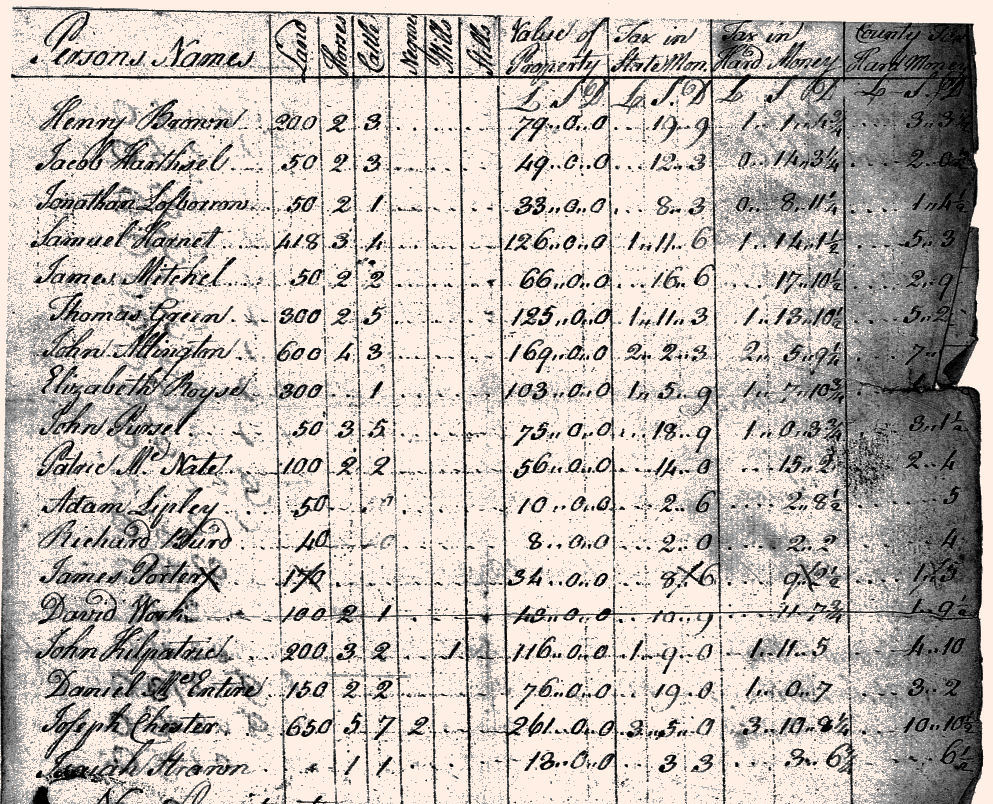 Persons Names Land Horses Cattle Negroes Mills Stills Value of Property Tax in State Mon. Tax in Hard Money County Tax Hard Money
£ S D £ S. D £ S D £ S. D
Henry Brown 200 2 3 79..0..0 19..9 1..1..4¾ 3..3
Jacob Harthsel 50 2 3 49..0..0 12..3 0..14..3¼ 2..0
Jonathan Lofborrow 50 2 1 33..0..0 8..3 0..8..11¼ 1..4½
Samuel Harnet 418 3 4 126..0..0 1..11..6 1..14..1½ 5..3
James Mitchel 50 2 2 66..0..0 16..6 17..10½ 2..9
Thomas Green 300 2 5 125..0..0 1..11..3 1..13..10½ 5..2
John Allington 600 4 3 169..0..0 2..2..3 2..5..9¼ 7..
Elizabeth 300 1 103..0..0 1..5..9 1..7..10¾
John 50 3 5 75..0..0 18..9 1..0..3¾ 3..1½
Patric Mc Nate 100 2 2 56..0..0 14..0 15..2 2..4
Adam Lipley 50 10..0..0 2..6 2..8½ 5
Richard Burd 40 8..0..0 2..0 2..2 4
James Porter 170 34..0..0 8..6 9..2½ 1..5
David Work 100 2 1 43..0..0 10..9 11..7¾ 1..9½
John Kilpatric 200 3 2 1 116..0..0 1..9..0 1..11..5 4..10
Daniel McEntire 150 2 2 76..0..0 19..0 1..0..7 3..2
Joseph Chester 650 5 7 2 261..0..0 3..5..0 3..10..8¼ 10..10½
1 1 13..0..0 3 3 3..6½ 6½